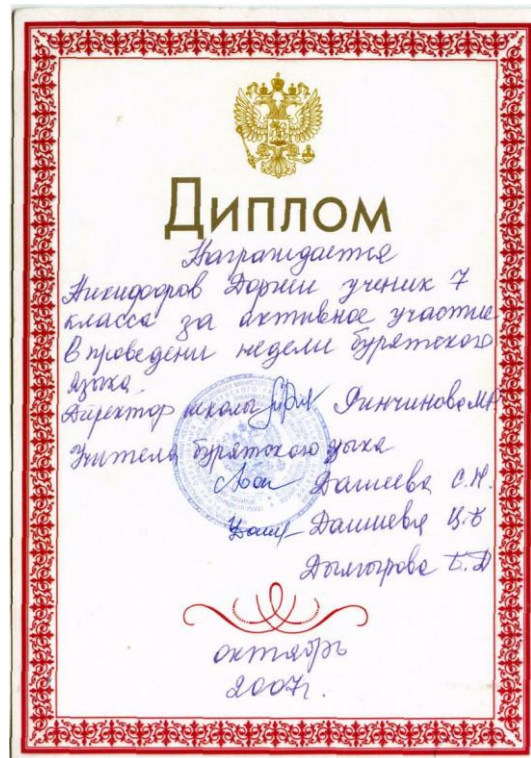 Диплом
Награждается
Никифоров Доржи ученик 7
класса за активное участие
в проведени недели бурятского
языка.
Директор школы Ринчинова М.Р.
Учителя бурятского языка
Дашеева С.Н.
Дашиева Ц.Б
Дылгырова Б.Д
октябрь
2007г.